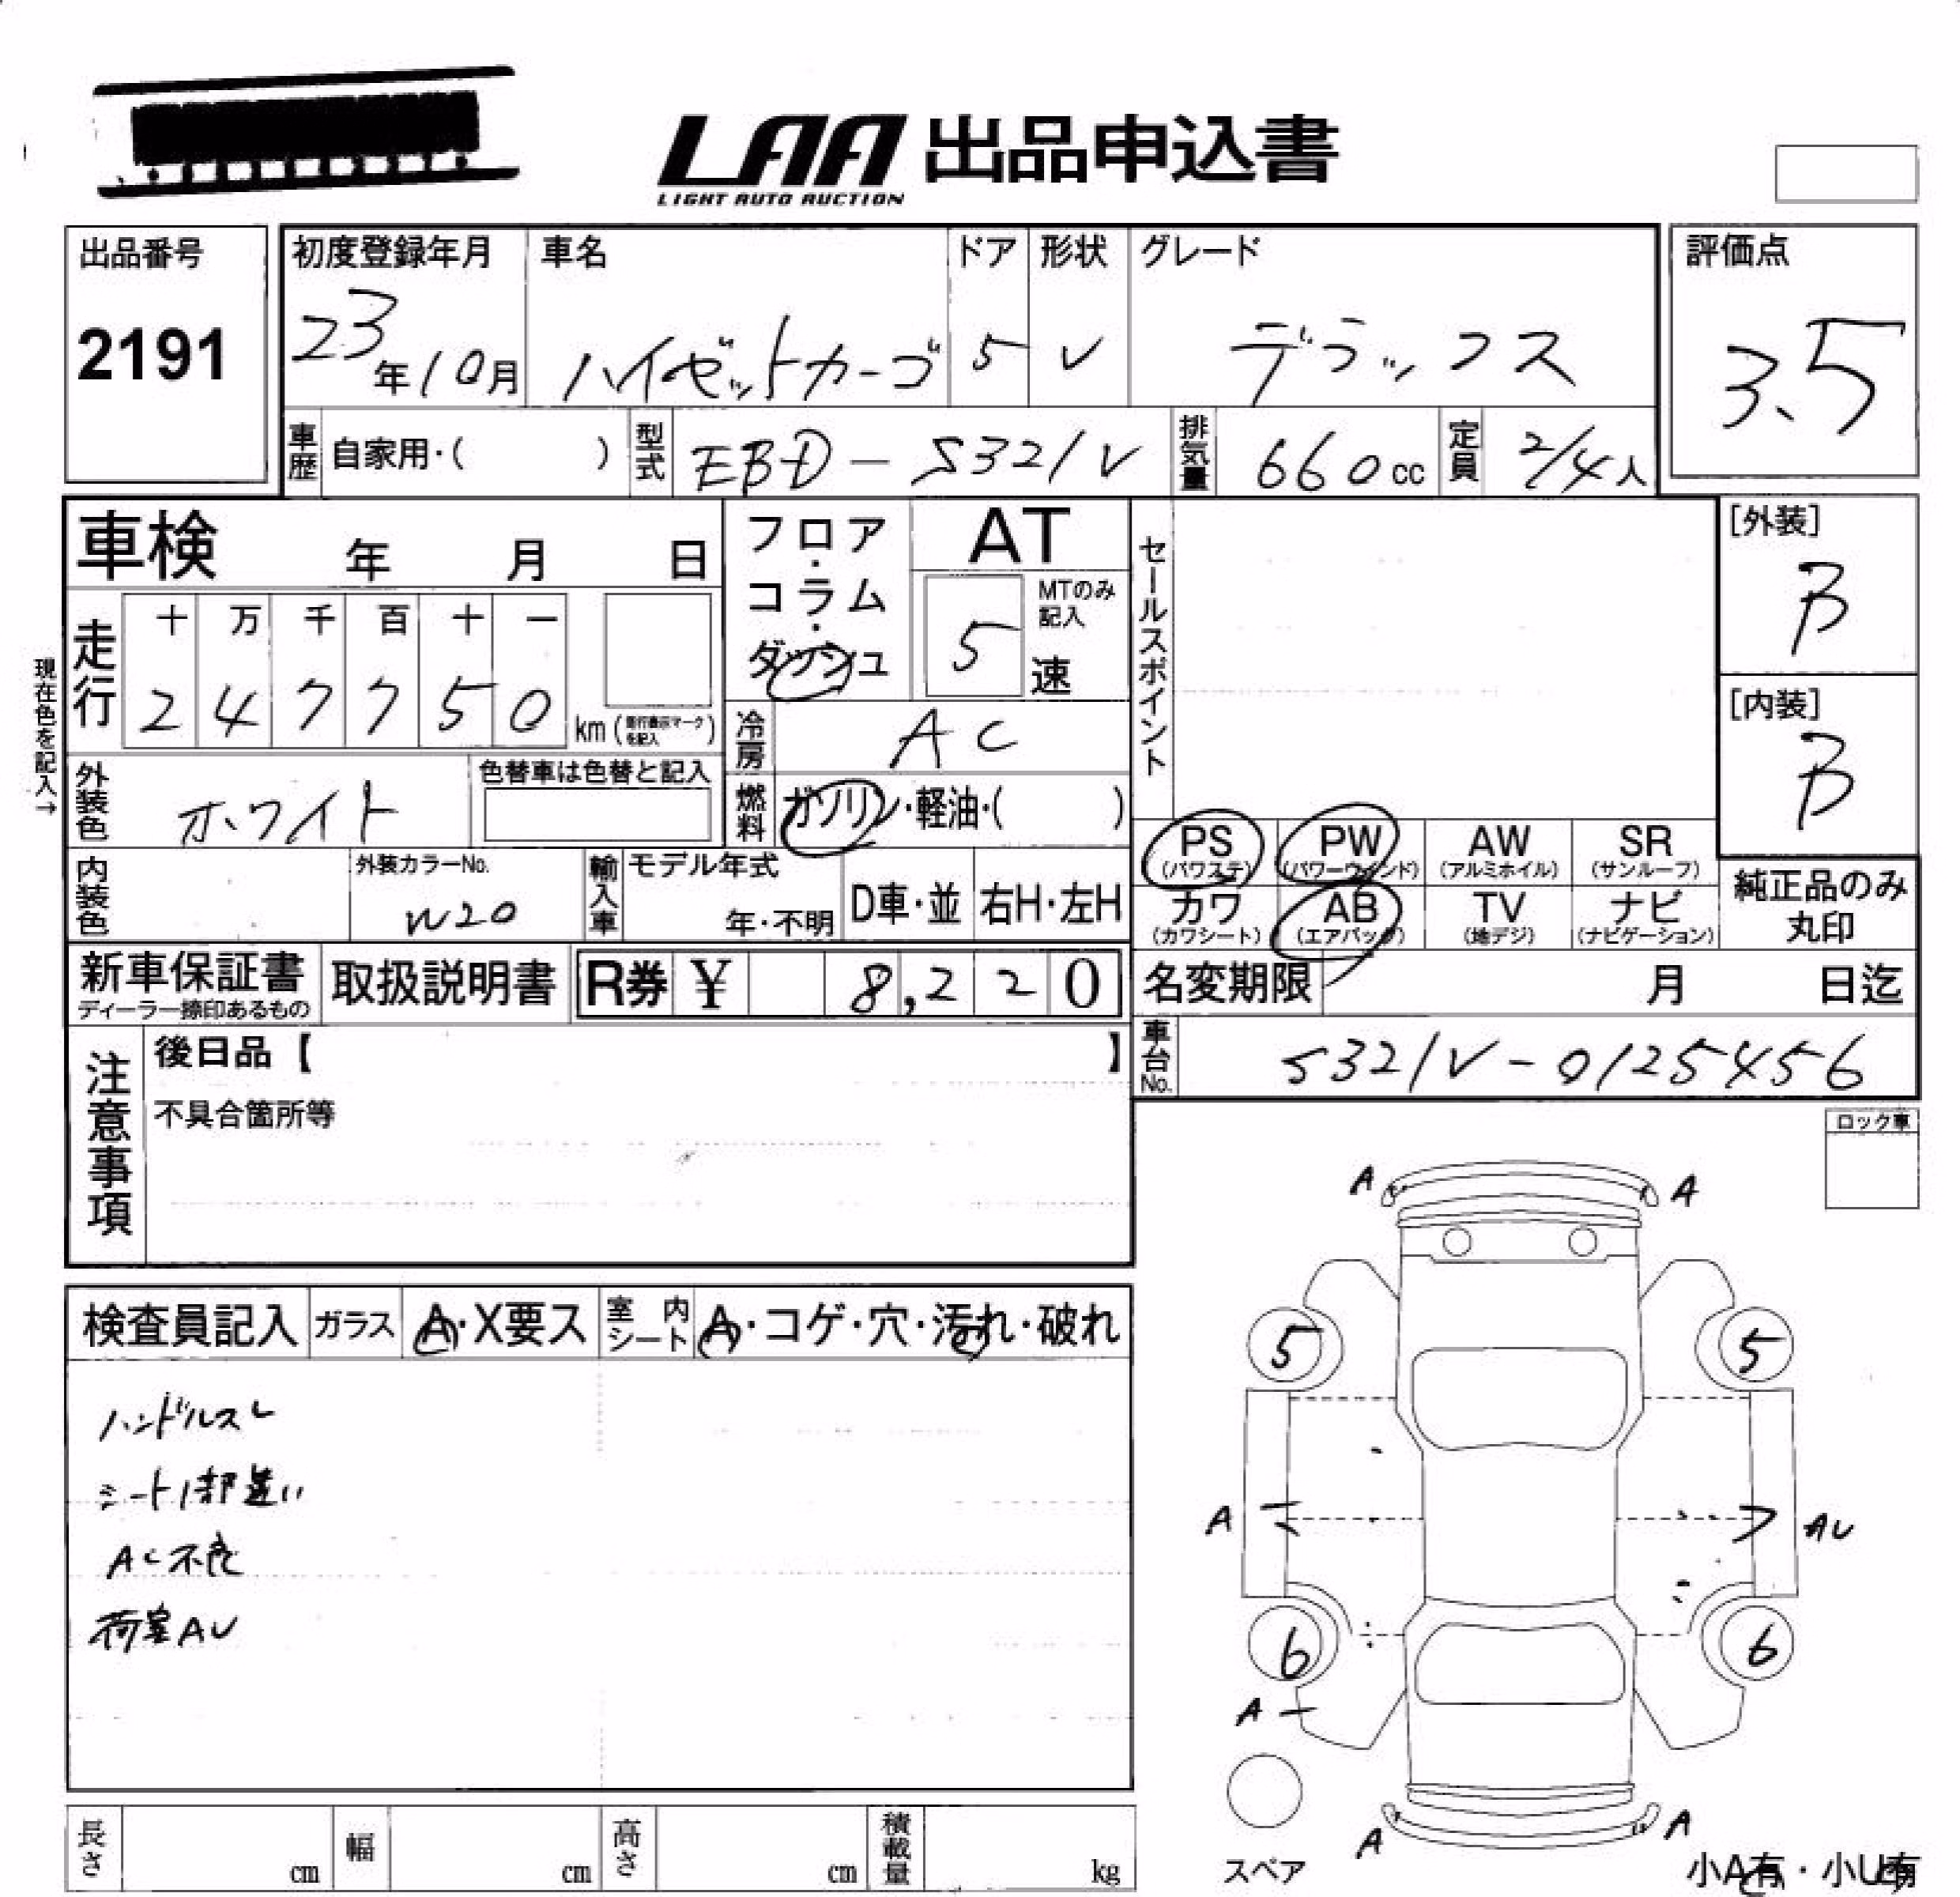 LAA 出品申込書
LIGHT AUTO AUCTION
出品番号
2191
初度登録年月 車名 ドア 形状 グレード
23年10月 ハイゼットカーゴ 5 V デラックス
評価点
3.5
車歴 自家用・( ) 型式 EBD-S321V 排気量 660cc 定員 2/4人
車検 年 月 日
フロア・コラム・ダッシュ
AT
MTのみ記入
5速
セールスポイント
[外装]
B
[内装]
B
現在色を記入→
走行 十 万 千 百 十 一
2 4 7 7 5 0 km (走行表示マークを記入)
冷房 AC
外装色 ホワイト 色替車は色替と記入
燃料 ガソリン・軽油・( )
PS (パワステ) PW (パワーウインド) AW (アルミホイル) SR (サンルーフ)
カワ (カワシート) AB (エアバック) TV (地デジ) ナビ (ナビゲーション)
純正品のみ丸印
内装色 外装カラーNo. W20 輸入車 モデル年式 年・不明 D車・並 右H・左H
新車保証書 ディーラー捺印あるもの 取扱説明書 R券 ¥ 8,220
名変期限 月 日迄
車台No. S321V-0125456
注意事項
後日品【 】
不具合箇所等
ロック車
検査員記入 ガラス A・X要ス 室内シート A・コゲ・穴・汚れ・破れ
ハンドルスレ
シート1部違い
AC不良
荷室AU
A A
5 5
A AU
6 6
A
A A
スペア
小A有・小U有
長さ cm 幅 cm 高さ cm 積載量 kg